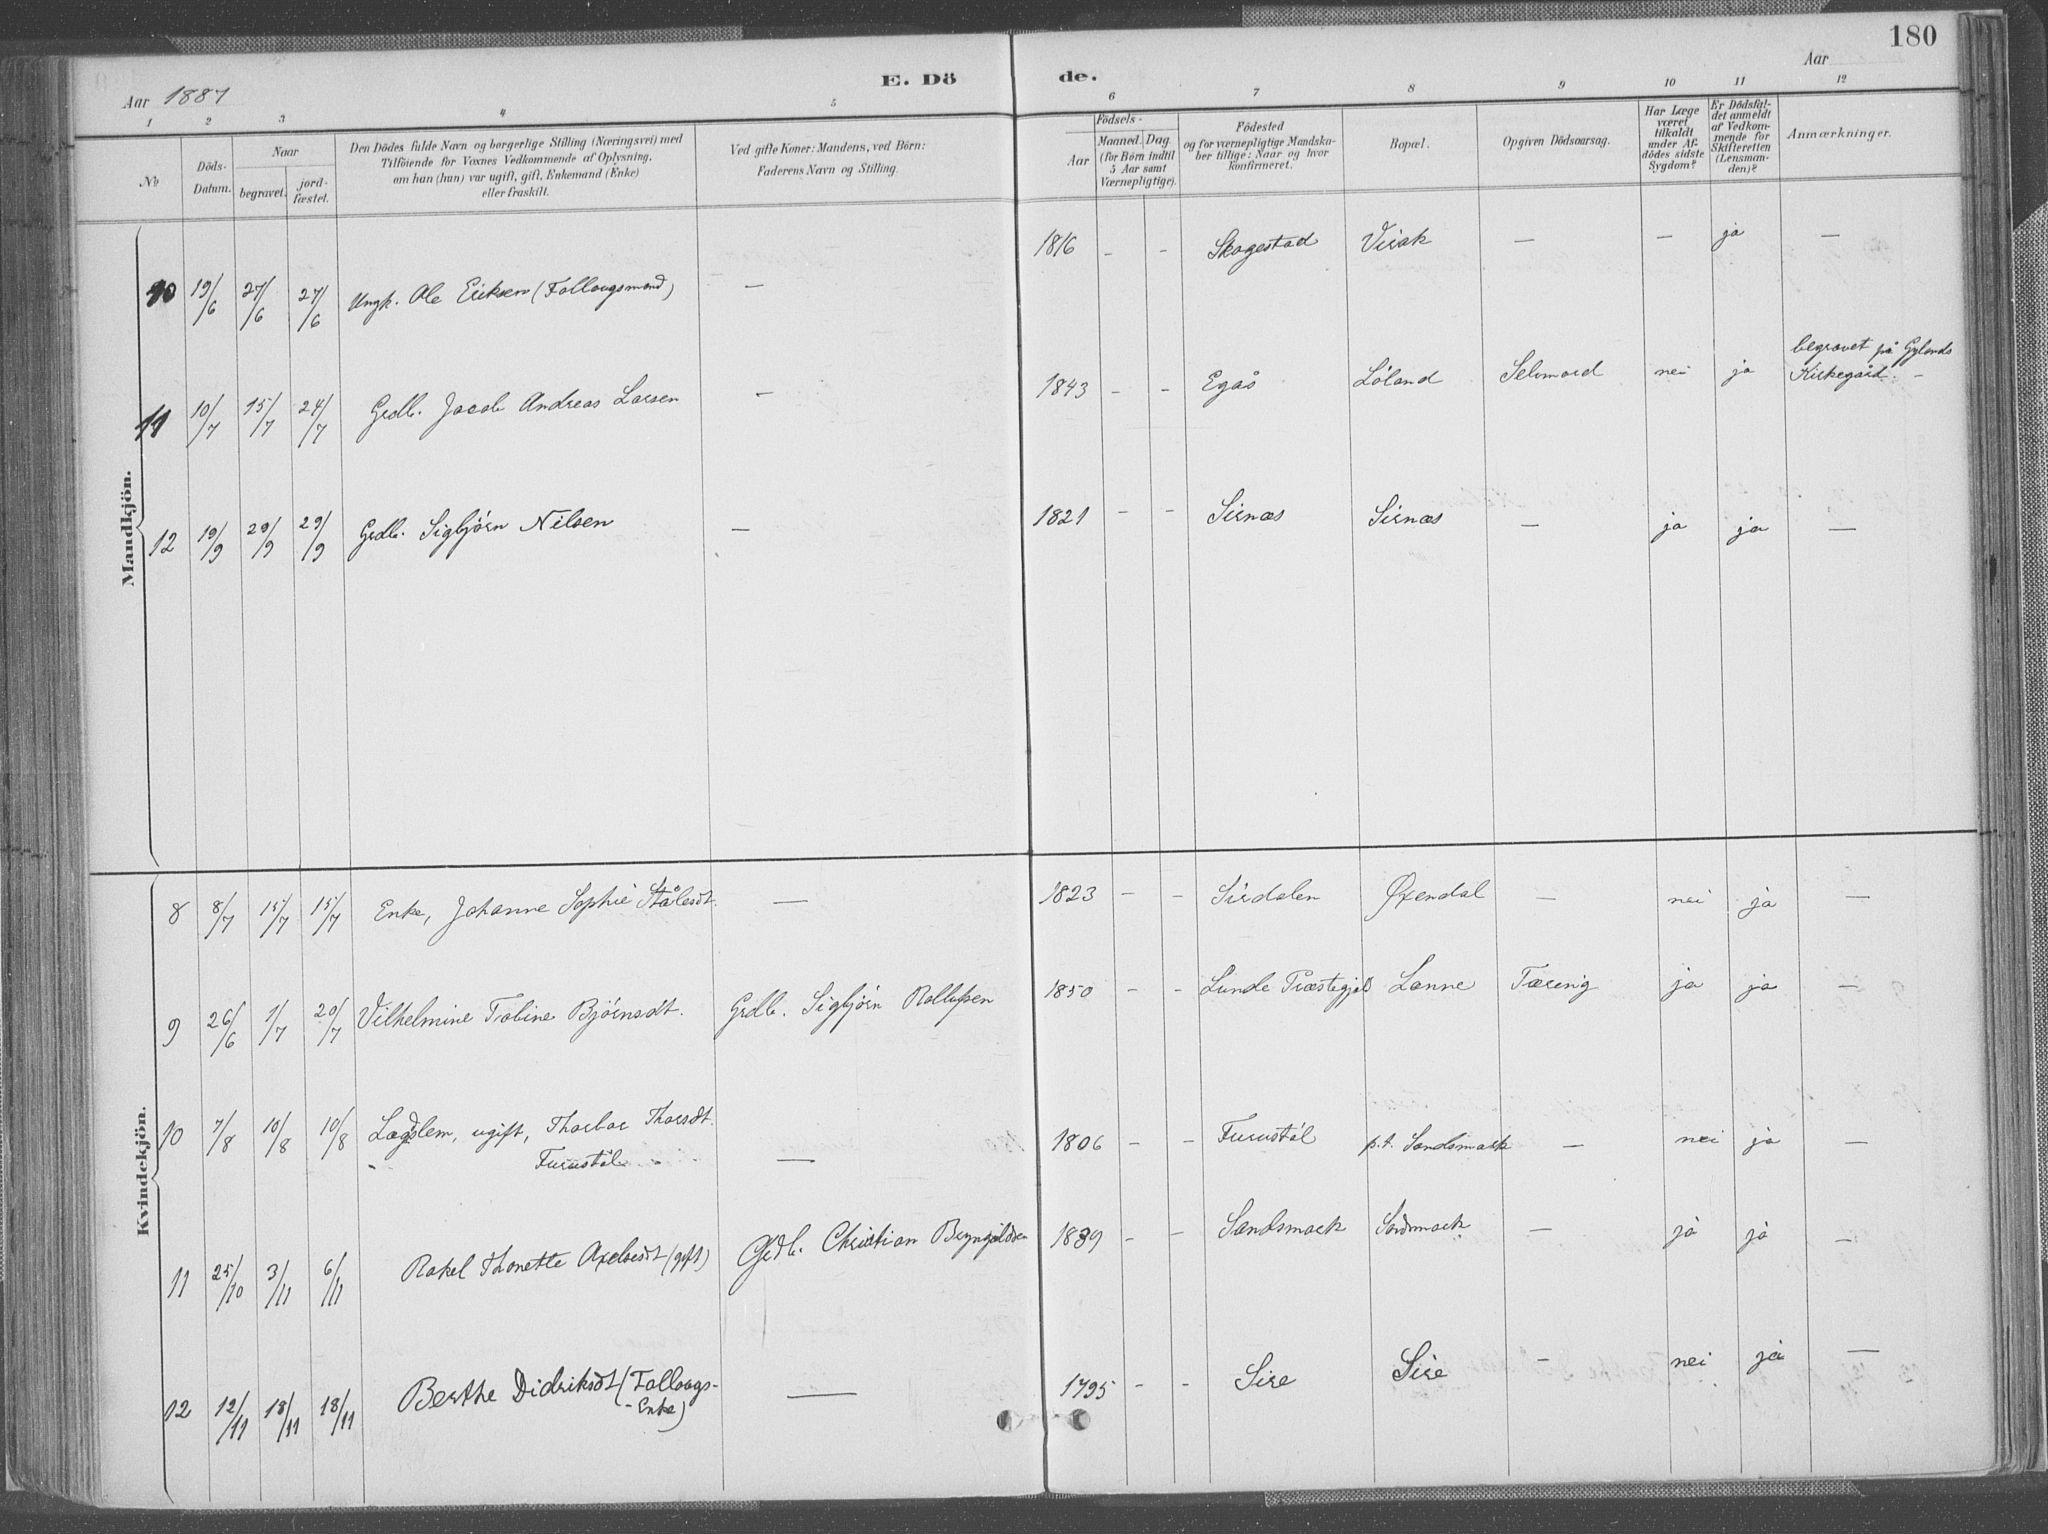 180
Aar 1887
E. Dö
de.
Aar
1 2 3 4 5 6 7 8 9 10 11 12
No
Döds-Datum.
Naar
begravet.
jord-fæstet.
Den Dödes fulde Navn og borgerlige Stilling (Næringsvei) med
Tilföiende for Voxnes Vedkommende af Oplysning,
om han (hun) var ugift, gift, Enkemand (Enke)
eller fraskilt.
Ved gifte Koner: Mandens, ved Börn:
Faderens Navn og Stilling.
Födsels-
Aar
Maaned. Dag
(for Börn indtil
5 Aar samt
Værnepligtige).
Födested
og for værnepligtige Mandska-
ber tillige: Naar og hvor
konfirmeret.
Bopæl.
Opgiven Dödsaarsag.
Har Læge
været
tilkaldt
under Af-
dödes sidste
Sygdom?
Er Dödsfal-
det anmeldt
af Vedkom-
mende for
Skifteretten
(Lensman-
den)?
Anmærkninger.
Mandkjön.
10 19/6 27/6 27/6 Ungk. Ole Eriksen (Follaugsmand) — 1816 - - Skogestad Virak — — ja —
11 10/7 15/7 24/7 Grdb. Jacob Andreas Larsen — 1843 - - Egås Løland Selvmord nei ja begravet på Gylands
Kirkegård. —
12 19/9 29/9 29/9 Grdb. Sigbjørn Nilsen — 1821 - - Sirnæs Sirnæs — ja ja —
Kvindekjön.
8 8/7 15/7 15/7 Enke, Johanne Sophie Stålesdt. — 1823 - - Sirdalen Øxendal — nei ja —
9 26/6 1/7 20/7 Vilhelmine Tobine Bjørnsdt. Grdb. Sigbjørn Rollufsen 1850 - - Lunde Præstegjeld Lanne Tæring ja ja —
10 7/8 10/8 10/8 Lægdslem, ugift, Thorbor Thorsdt.
Furustøl — 1806 - - Furustøl p.t. Sandsmark — nei ja —
11 25/10 3/11 6/11 Rakel Thonette Axelsdt (gift) Grdb. Christian Bryngildsen 1839 - - Sandsmark Sandsmark — ja ja —
12 12/11 18/11 18/11 Berthe Didriksdt (Follaugs-
-Enke) — 1795 - - Sire Sire — nei ja —